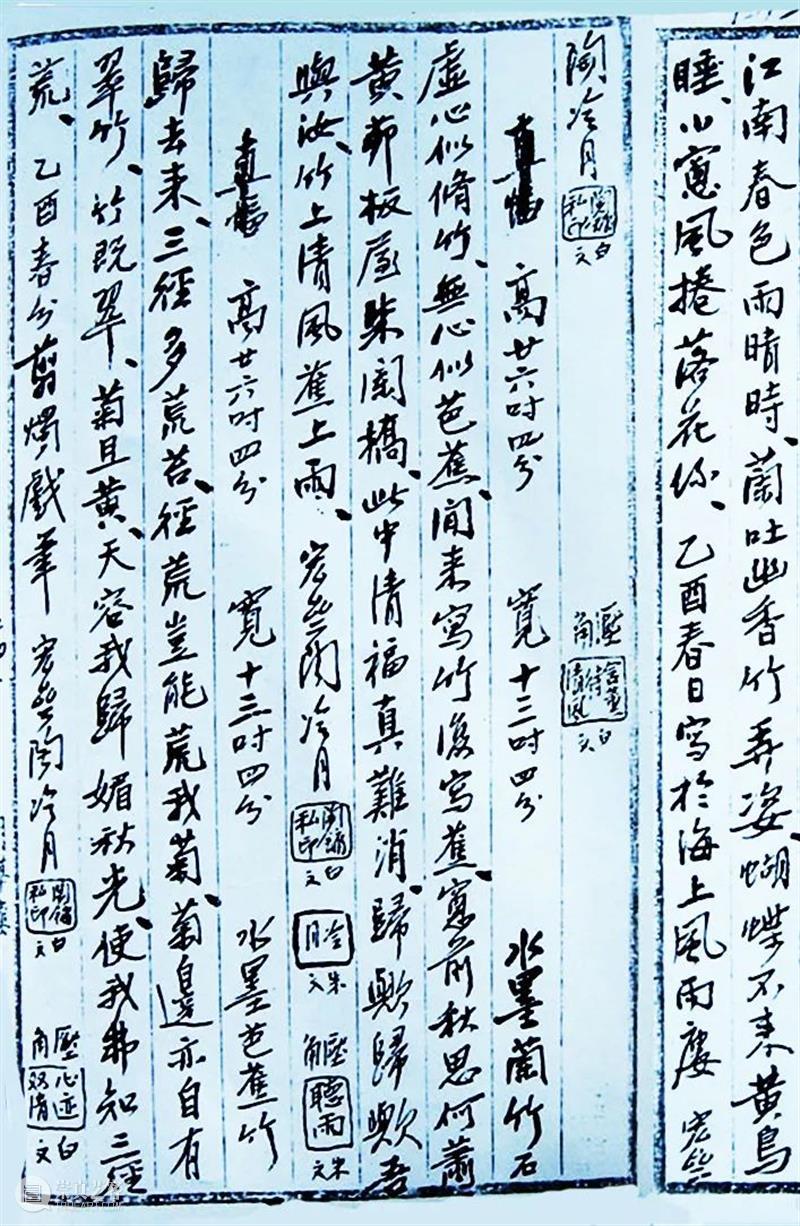 江南春色雨晴時、蘭吐幽香竹弄姿、蝴蝶不来黃鳥
睡、小窻風捲落花絲、乙酉春日寫於海上風雨廔 宏斎
陶冷月 陶鏞私印 白文 壓角 含薰待清風 白文
直幅 高廿六吋四分 寬十三吋四分 水墨蘭竹石
虛心似脩竹、無心似芭蕉、閒来寫竹復寫蕉、窻前秋思何蕭
黃茆板屋朱闌橋、此中清福真難消、歸歟歸歟吾
與汝、竹上清風蕉上雨、宏斎陶冷月 陶鏞私印 白文 冷月 朱文 壓角 聽雨 朱文
直幅 高廿六吋四分 寬十三吋四分 水墨芭蕉竹
歸去来、三徑多荒苔、徑荒豈能荒我菊、菊邊亦自有
翠竹、竹既翠、菊且黃、天容我歸媚秋光、使我弗知三徑
荒、乙酉春分剪燭戲筆 宏斎陶冷月 陶鏞私印 白文 壓角 心迹双清 白文